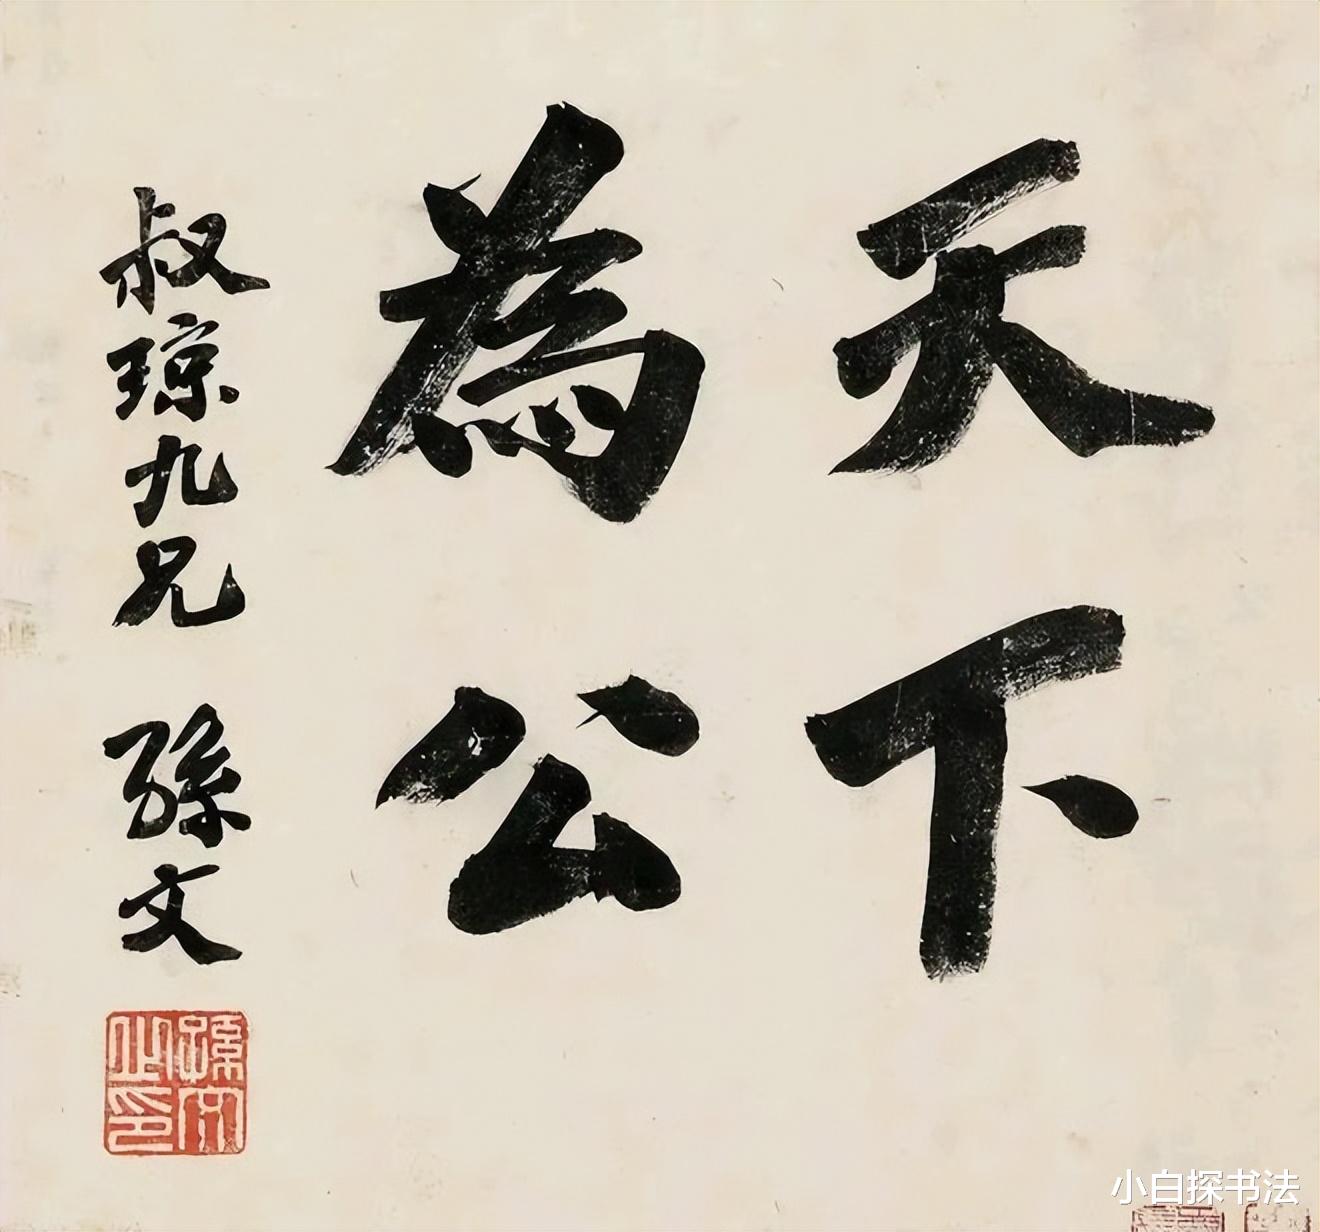 天下
為公
叔琼九兄
孫文
孫文之印
小白探书法